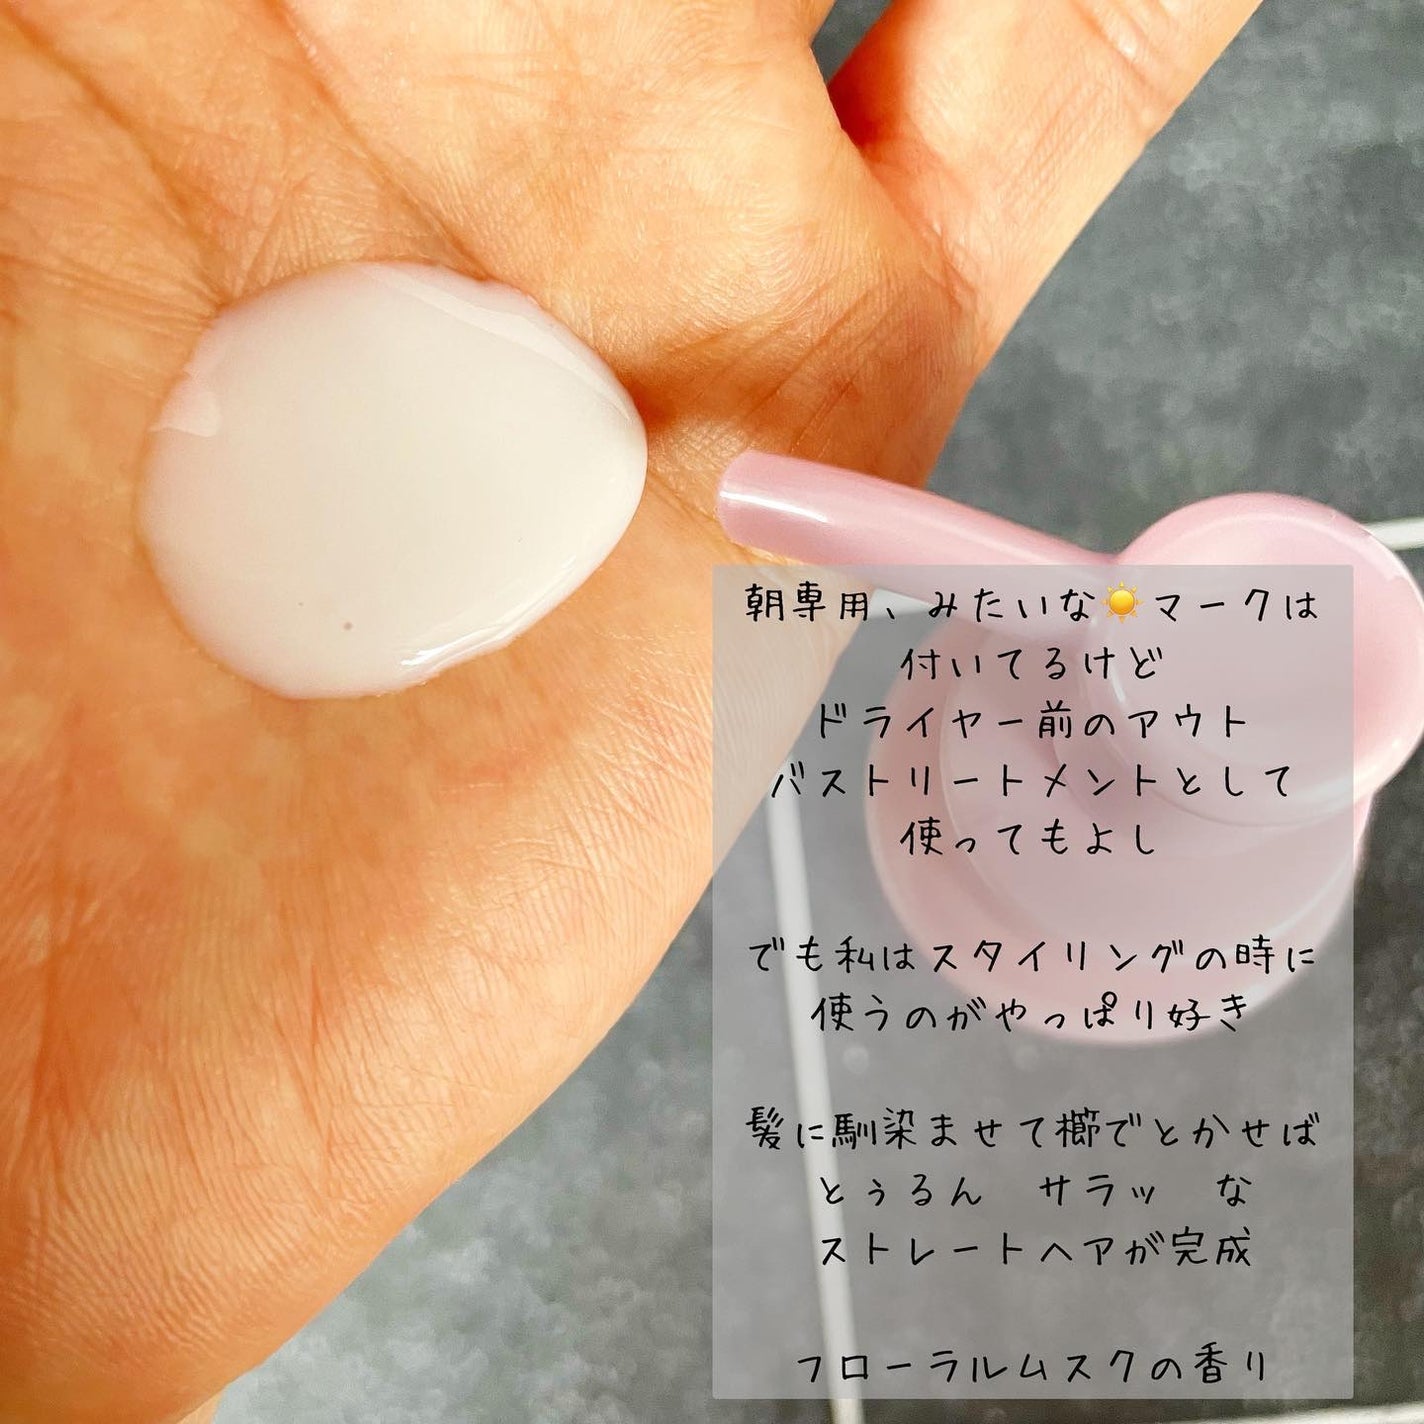 朝専用、みたいな☀️マークは
付いてるけど
ドライヤー前のアウト
バストリートメントとして
使ってもよし
でも私はスタイリングの時に
使うのがやっぱり好き
髪に馴染ませて櫛でとかせば
とぅるん　サラッ　な
ストレートヘアが完成
フローラルムスクの香り